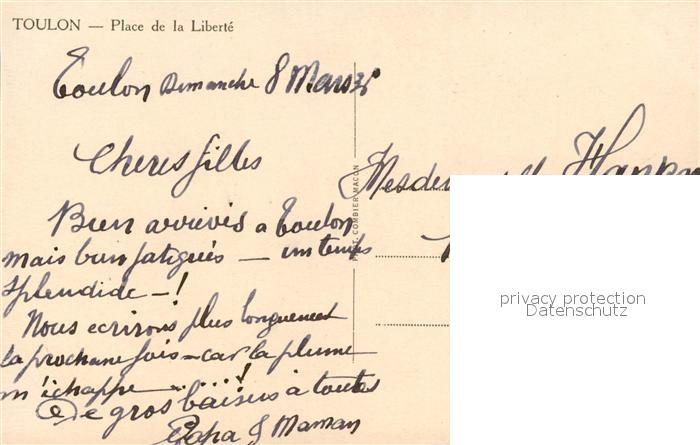 TOULON — Place de la Liberté
Toulon Dimanche 8 Mars 36
Cheres filles
Bien arrivés a Toulon
mais bien fatigués — un temps
splendide — !
Nous ecrirons plus longuement
la prochaine fois — car la plume
m'échappe — . . . . !
De gros baisers à toutes
Papa & Maman
PHOT. COMBIER MACON
Mesdemoiselles
privacy protection
Datenschutz